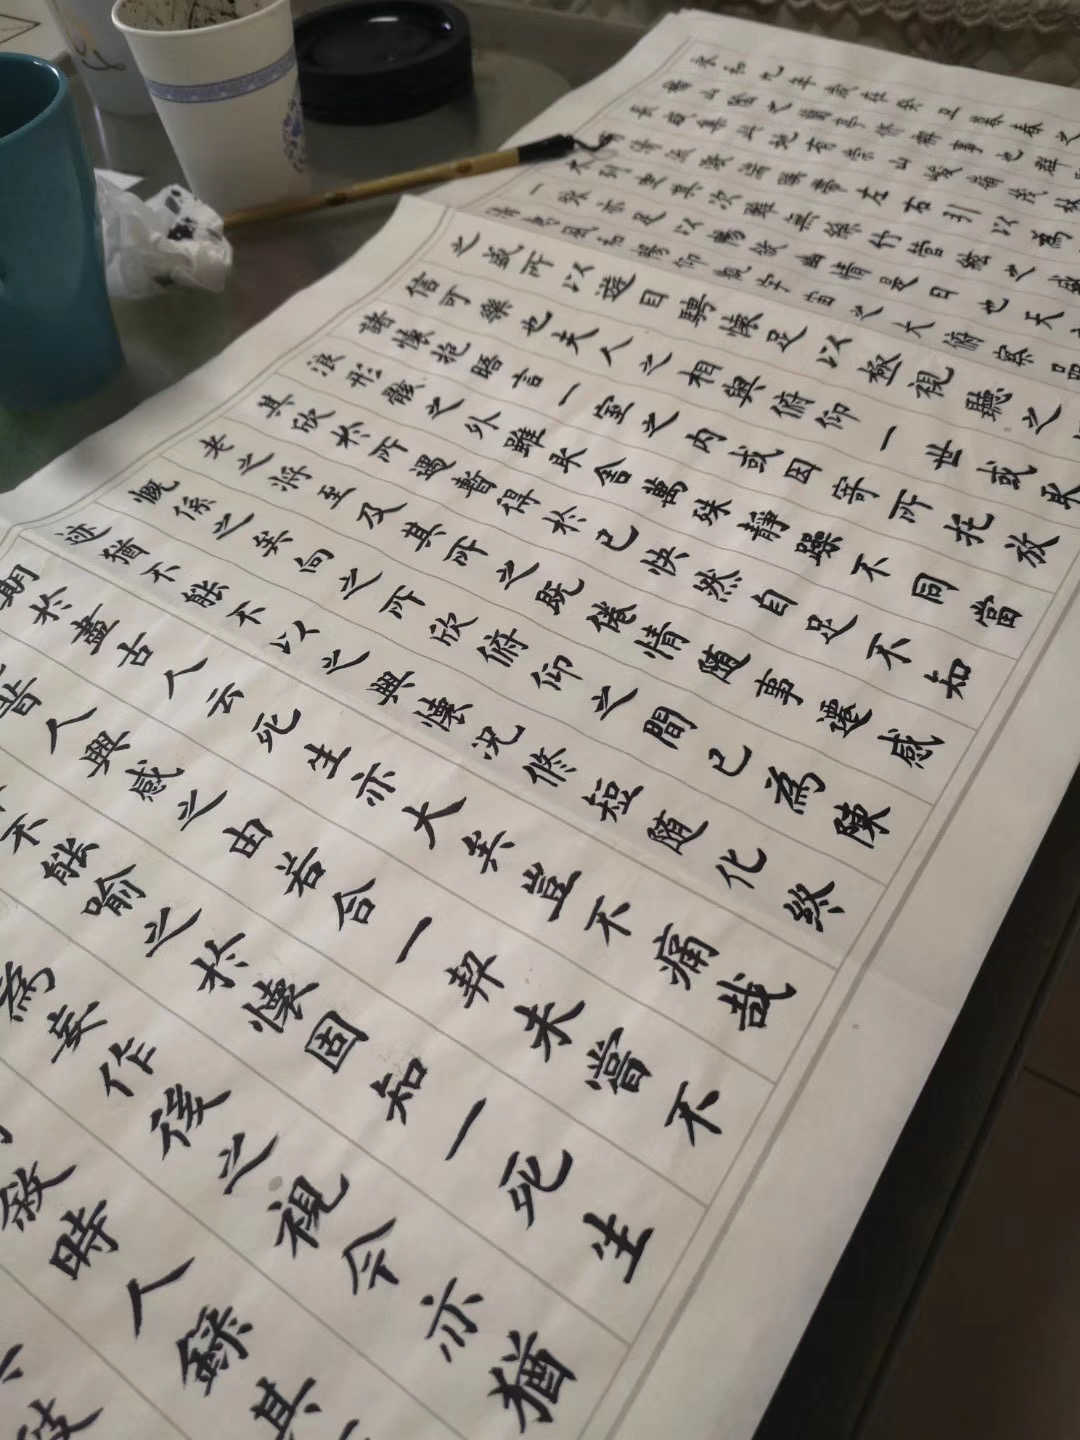 永和九年歲在癸丑暮春之
山陰之蘭亭脩禊事也群
長咸集此地有崇山峻領茂
清流激湍暎帶左右引以為
列坐其次雖無絲竹管絃之盛
一詠亦足以暢敘幽情是日也天
清惠風和暢仰觀宇宙之大俯察品
之盛所以遊目騁懷足以極視聽之
信可樂也夫人之相與俯仰一世或取
諸懷抱晤言一室之內或因寄所托放
浪形骸之外雖取舍萬殊靜躁不同當
其欣於所遇暫得於己快然自足不知
老之將至及其所之既倦情隨事遷感
慨係之矣向之所欣俯仰之間已為陳
迹猶不能不以之興懷況脩短隨化終
期於盡古人云死生亦大矣豈不痛哉
昔人興感之由若合一契未嘗不
不能喻之於懷固知一死生
為妄作後之視今亦猶
敘時人錄其
致